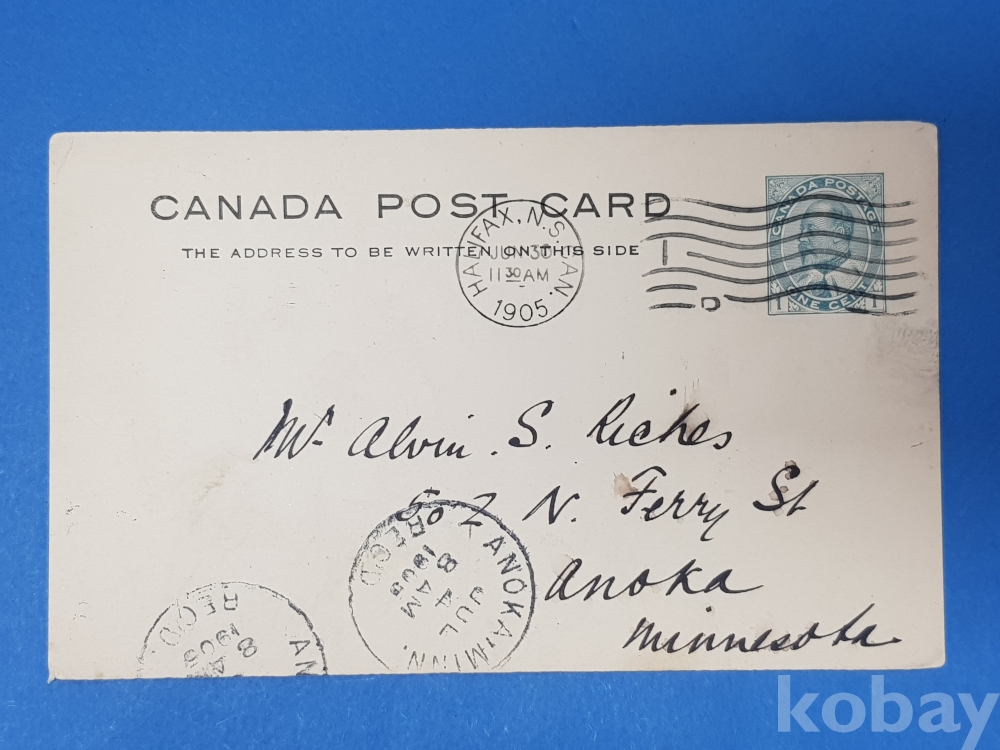 CANADA POST CARD
THE ADDRESS TO BE WRITTEN ON THIS SIDE
HALIFAX, N.S. CAN.
JUN 30
11 30 AM
1905.
CANADA POSTAGE
ONE CENT
1 1
Mr. Alvin. S. Riches
N. Ferry St
Anoka
Minnesota
ANOKA, MINN.
JUL
4
8 AM
1905
REC'D
AN
8 A
1905
REC'D.
kobay